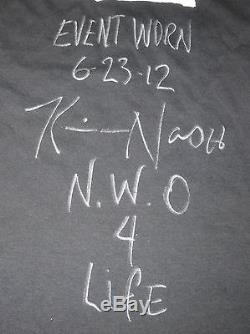 EVENT WORN
6-23-12
Kevin Nash
N.W.O
4
LiFE
ebay